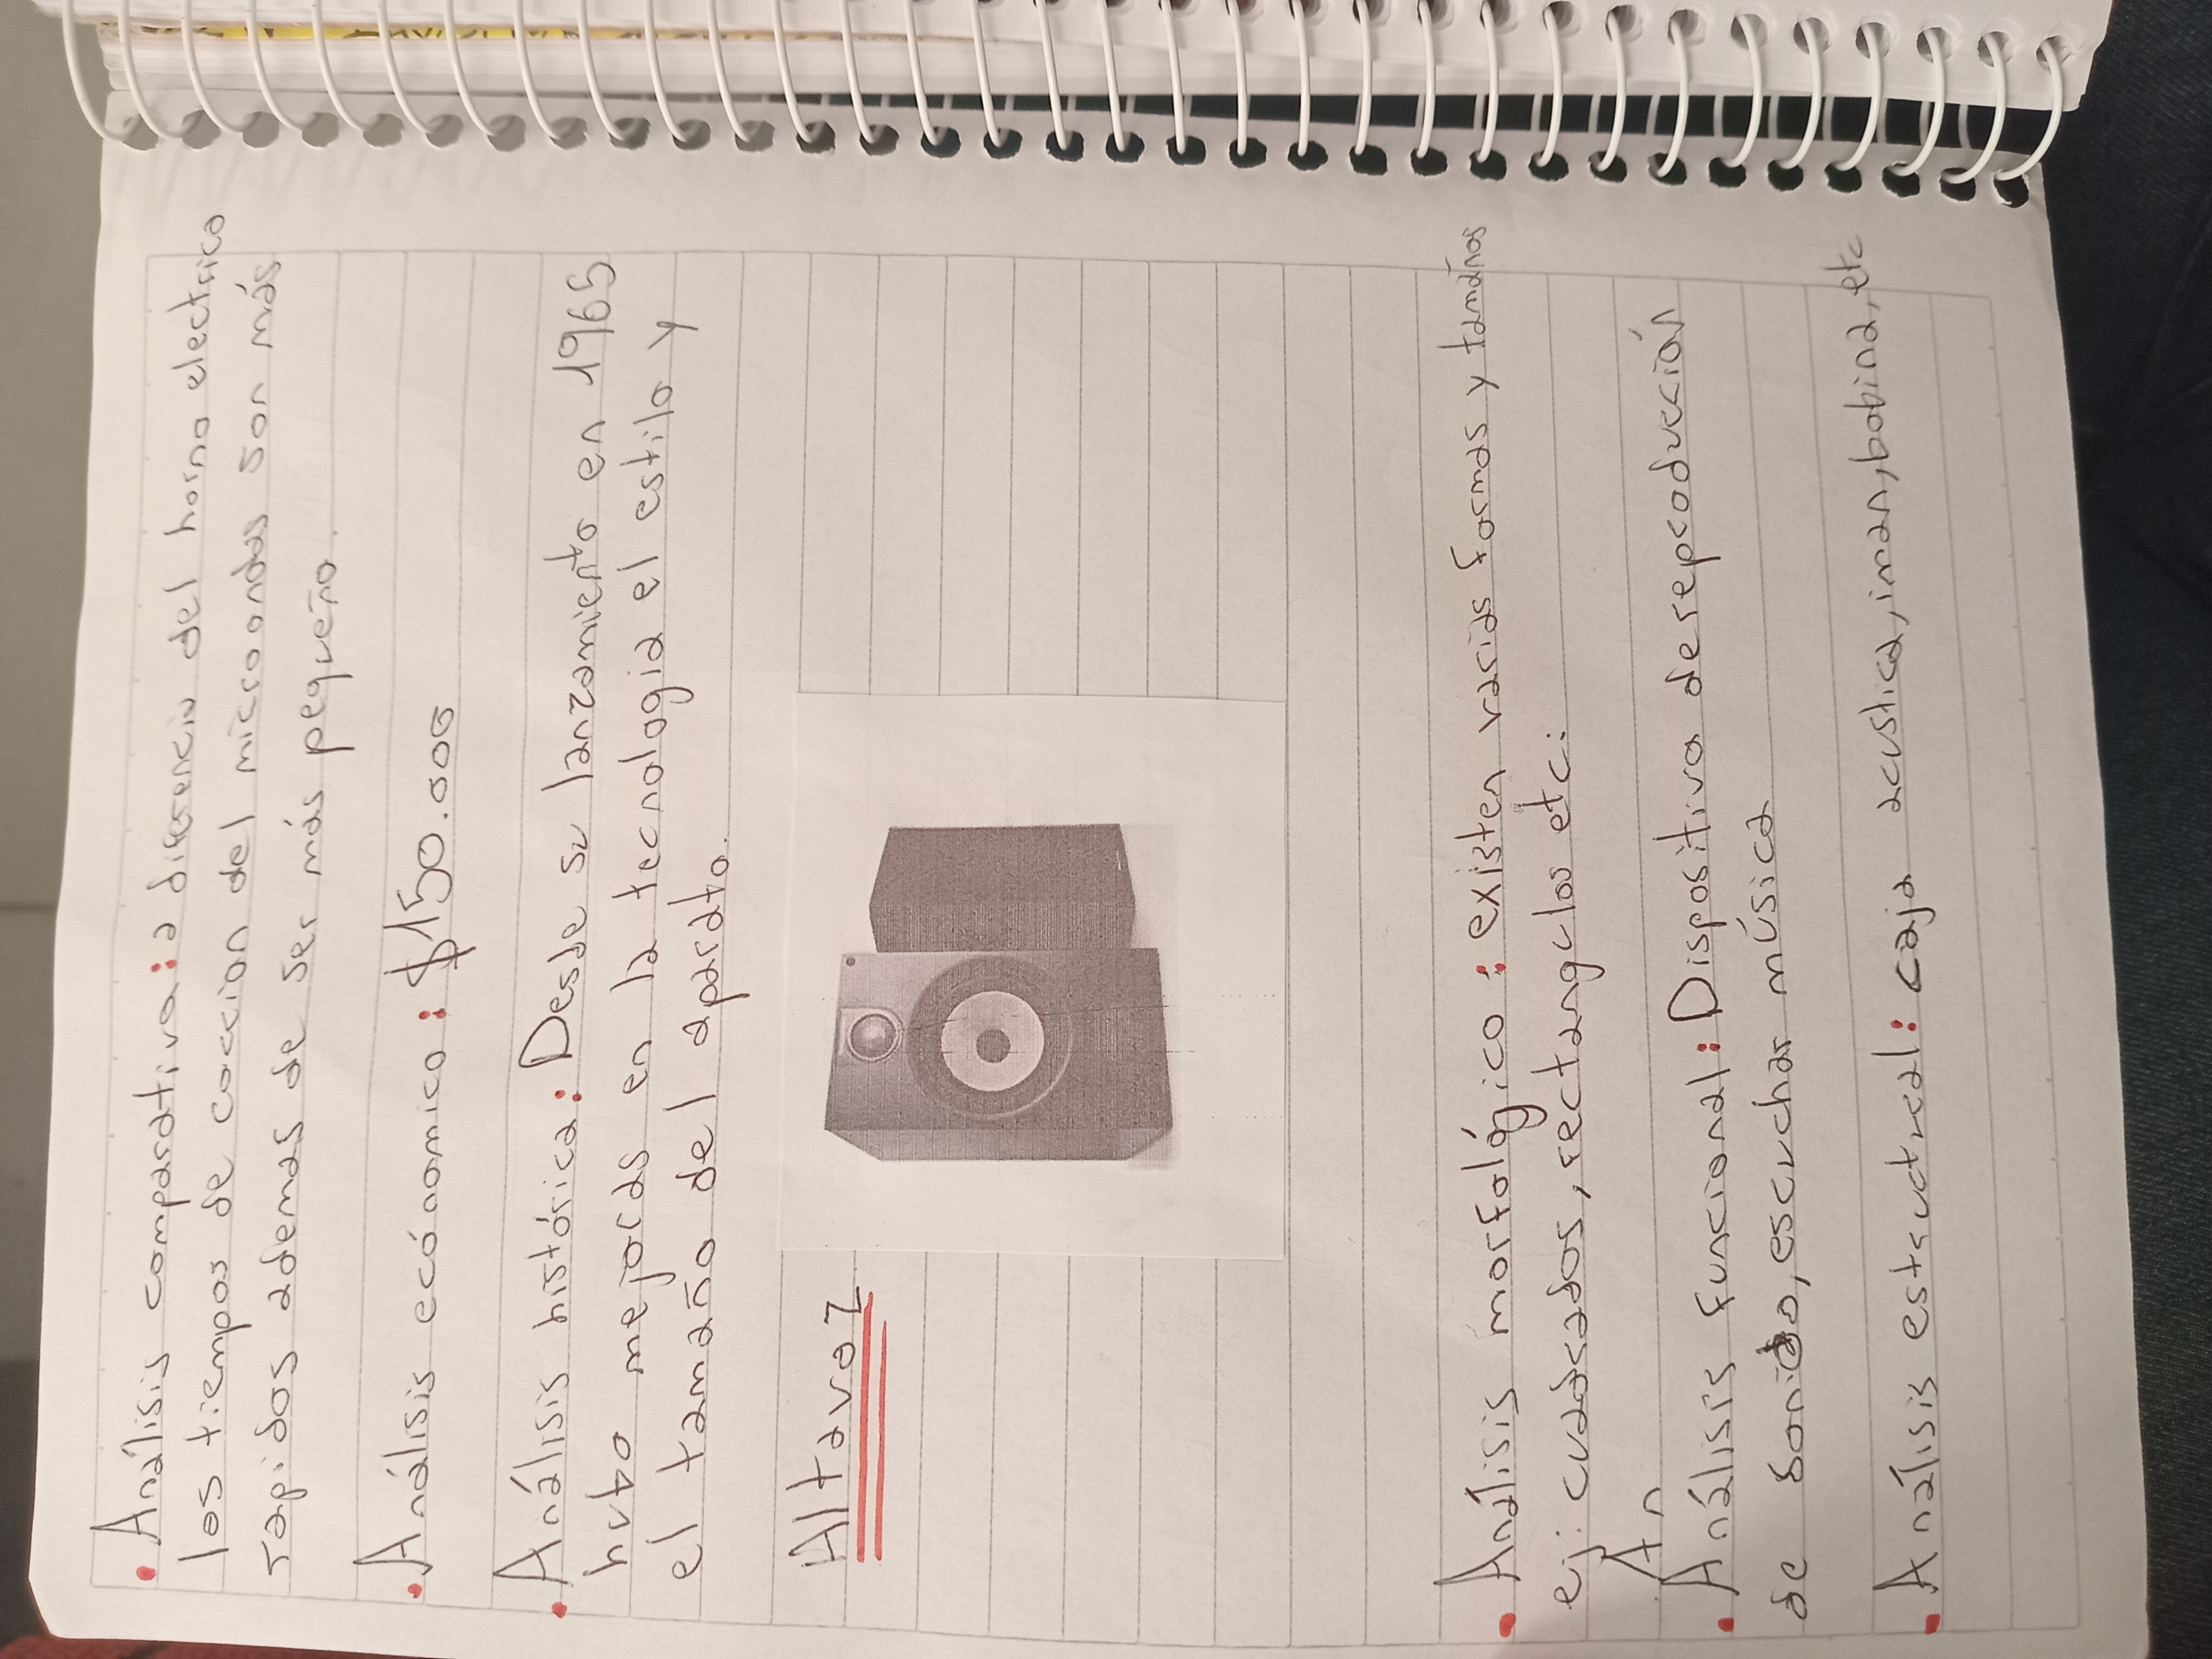 • Análisis comparativa: a diferencia del horno electrico
los tiempos de coccion del microondas son más
rapidos ademas de ser más pequeño.
• Análisis ecónomico: $150.000
• Análisis histórica: Desde su lanzamiento en 1965
hubo mejoras en la tecnologia el estilo y
el tamaño del aparato.
Altavoz
• Análisis morfológico: existen varias formas y tamaños
ej: cuadrados, rectangulos etc:
An
• Análisis funcional: Dispositivo de reproducción
de sonido, escuchar música
• Análisis estructural: caja acustica, iman, bobina, etc